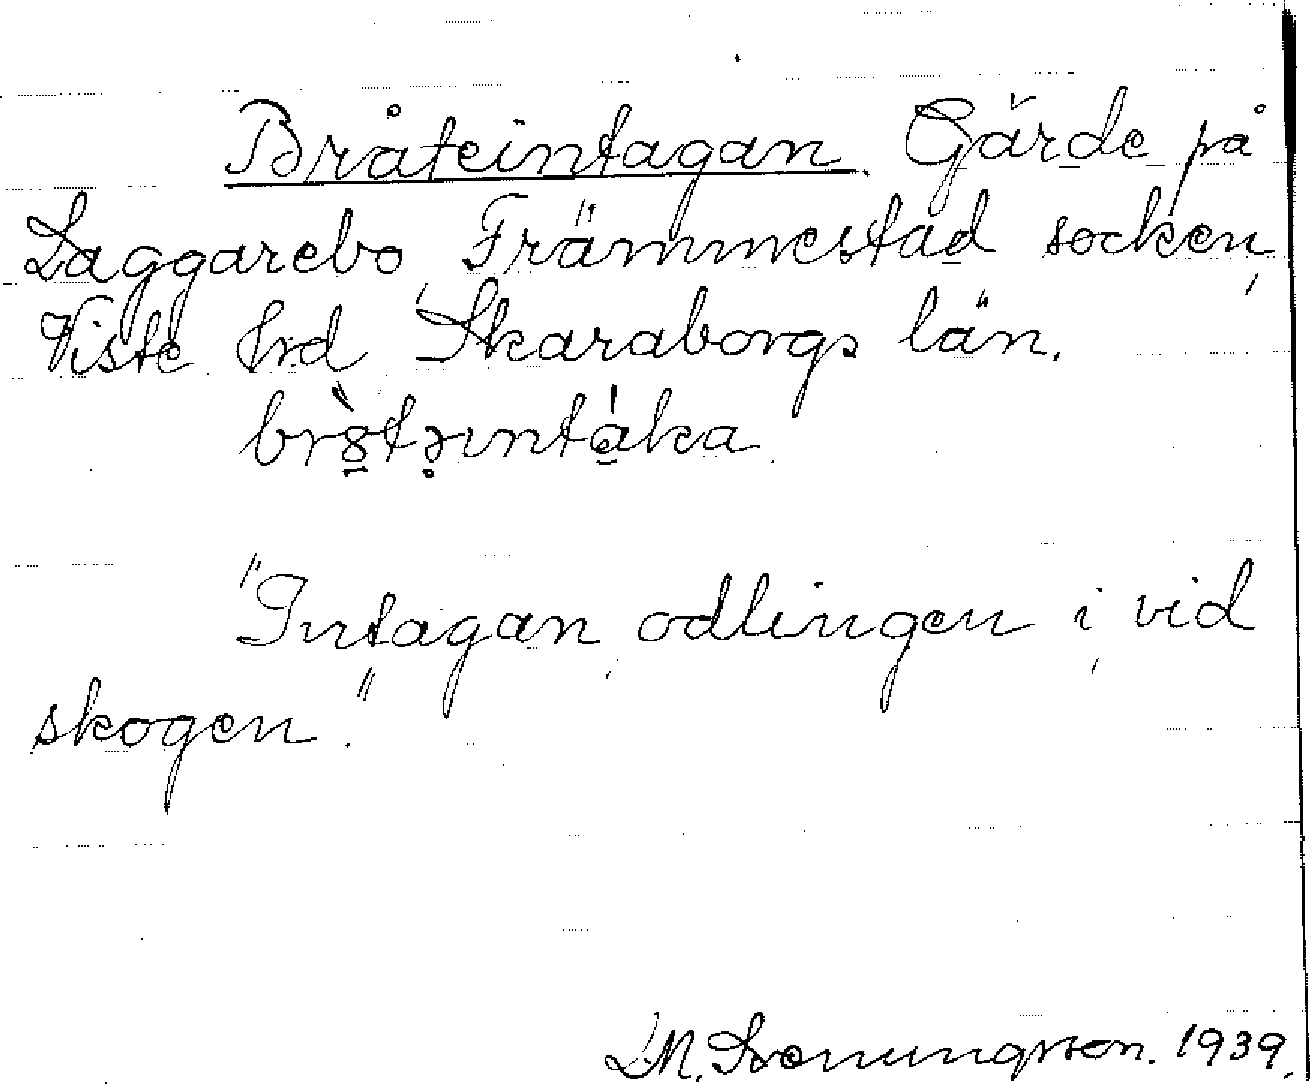 Bråteintagan. Gärde på
Laggarebo, Främmestad socken,
Viste hrd Skaraborgs län.
"Intagan, odlingen i, vid
skogen."
L.M. Svenungsson. 1939.